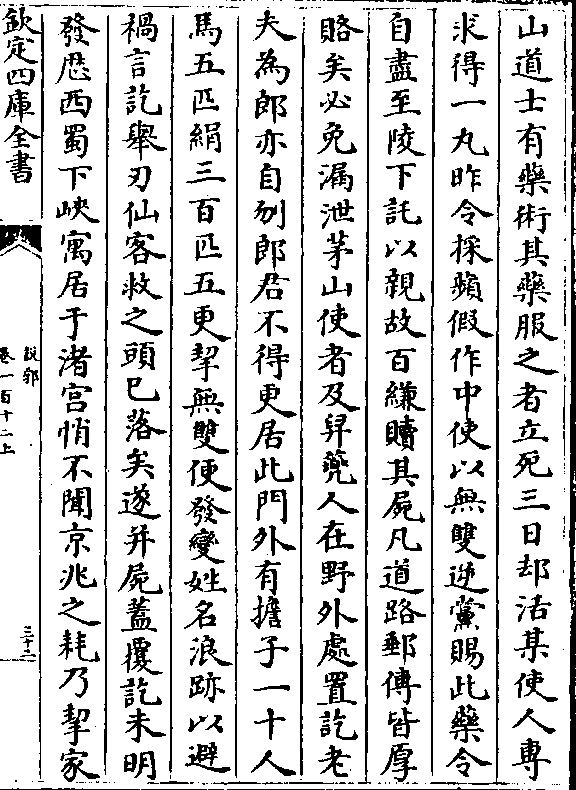 山道士有藥術其藥服之者立死三日却活某使人専
求得一丸昨令採蘋假作中使以無雙逆黨賜此藥令
自盡至陵下託以親故百縑贖其屍凡道路郵傳皆厚
賂矣必免漏泄茅山使者及舁篼人在野外處置訖老
夫為郎亦自刎郎君不得更居此門外有擔子一十人
馬五匹絹三百匹五更挈無雙便發變姓名浪跡以避
禍言訖舉刃仙客救之頭已落矣遂并屍蓋覆訖未明
發厯西蜀下峽寓居于渚宫悄不聞京兆之耗乃挈家
欽定四庫全書
説郛
卷一百十二上
三十二